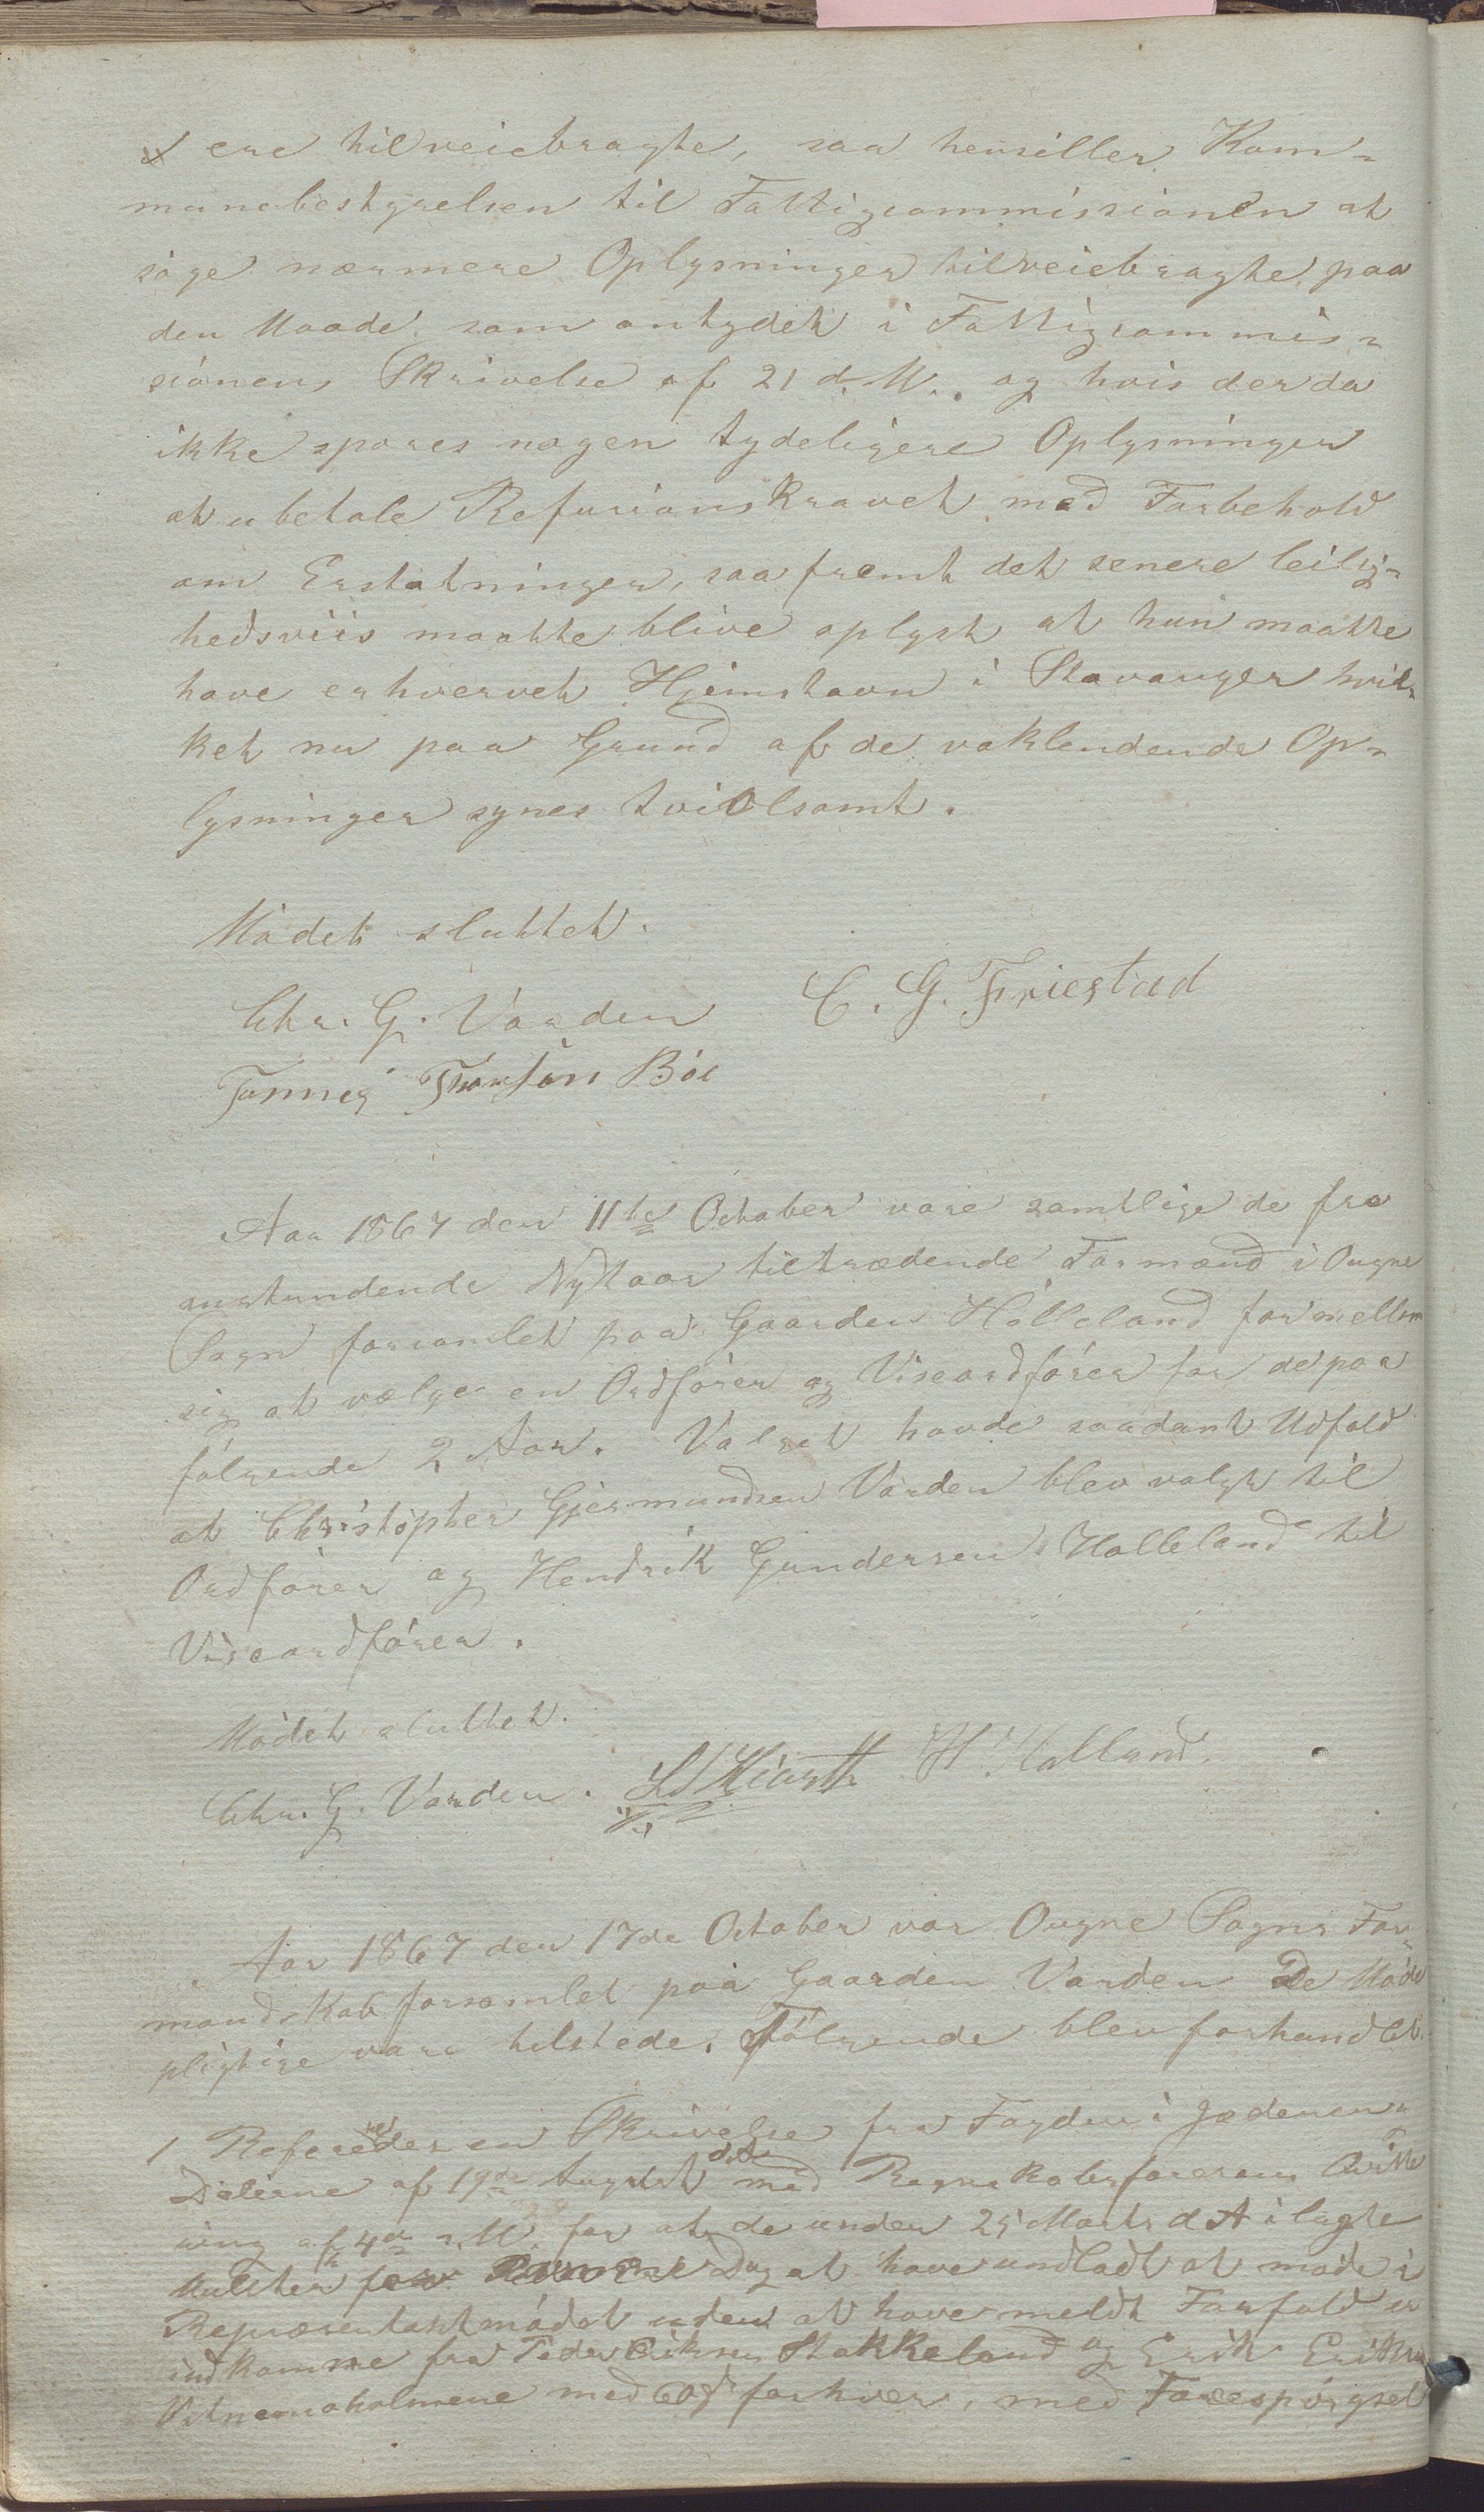 ere tilveiebragte, saa henstiller Kom-
munebestyrelsen til Fattigcommissionen at
söge nærmere Oplysninger tilveiebragte paa
den Maade som antydet i Fattigcommis-
sionens Skrivelse af 21 d. M. og hvis der da
ikke spores nogen tydeligere Oplysninger
at ubetale Refusionskravet med Forbehold
om Erstatninger, saafremt det senere leilig-
hedsviis maatte blive oplyst at hun maatte
have erhvervet Hjemstavn i Stavanger hvil-
ket nu paa Grund af de vaklendende Op-
lysninger synes tvivlsomt.
Mödet sluttet.
Chr. G. Varden C. G. Friestad
Tönnes Thorsön Böe
Aar 1867 den 11te October vare samtlige de fra
anstundende Nyttaar tiltrædende Formænd i Ougne
Sogn forsamlet paa Gaarden Hölleland for mellem
sig at vælge en Ordförer og Viseordförer for de paa
fölgende 2 Aar. Valget havde saadant Udfald
at Christopher Gjermundsen Varden blev valgt til
Ordförer og Hendrik Gundersen Holleland til
Viseordförer.
Mödet sluttet.
Chr. G. Varden. H. Halland.
Aar 1867 den 17de October var Ougne Sogns For-
mandskab forsamlet paa Gaarden Varden De Möde
pligtige vare tilstede. Fölgende blev forhandlet.
1 Refereredes en Skrivelse fra Fogden i Jæderen &
Dalerne af 19de August d.A. med Regnskabsförerens Qvitte
ring af 4de s. M. for at de under 25 Marts d A ilagte
Mulkter for Dag at have undladt at möde i
Repræsentantmödet uden at have meldt Forfald er
indkomne fra Peder Eriksen Stokkeland og Erik Eriksen
med 60 s forhver, med Forespörgsel